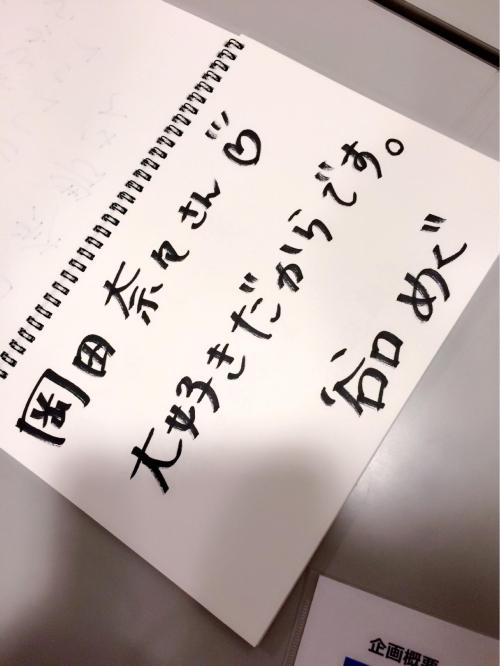 岡田奈々さん♡
大好きだからです。
谷口めぐ
企画概要